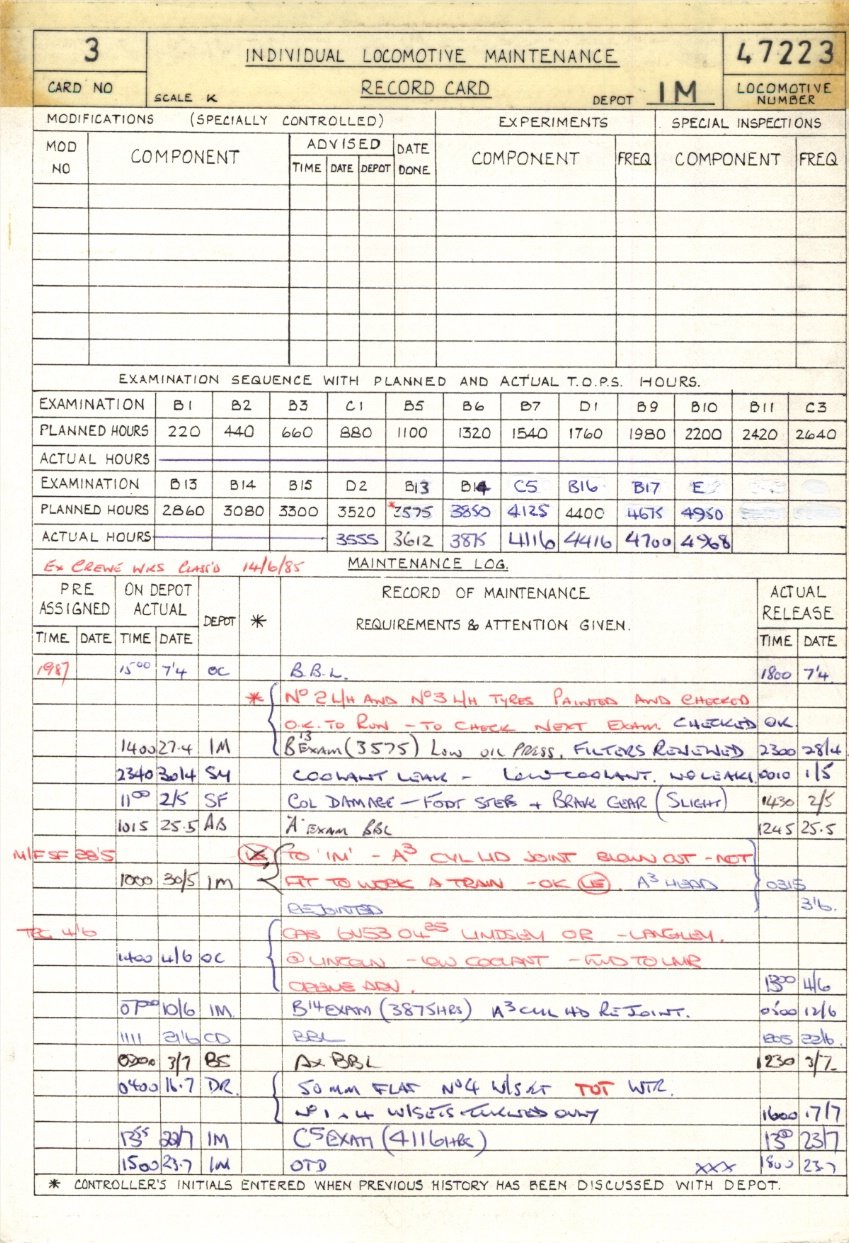 3 INDIVIDUAL LOCOMOTIVE MAINTENANCE 47223
CARD NO SCALE K RECORD CARD DEPOT 1M LOCOMOTIVE NUMBER
MODIFICATIONS (SPECIALLY CONTROLLED) EXPERIMENTS SPECIAL INSPECTIONS
MOD NO COMPONENT ADVISED DATE DONE COMPONENT FREQ COMPONENT FREQ
TIME DATE DEPOT
EXAMINATION SEQUENCE WITH PLANNED AND ACTUAL T.O.P.S. HOURS.
EXAMINATION B1 B2 B3 C1 B5 B6 B7 D1 B9 B10 B11 C3
PLANNED HOURS 220 440 660 880 1100 1320 1540 1760 1980 2200 2420 2640
ACTUAL HOURS
EXAMINATION B13 B14 B15 D2 B13 B14 C5 B16 B17 E
PLANNED HOURS 2860 3080 3300 3520 *3575 3850 4125 4400 4675 4950
ACTUAL HOURS 3555 3612 3875 4116 4416 4700 4968
EX CREWE WKS CLASS'D 14/6/85 MAINTENANCE LOG.
PRE ASSIGNED ON DEPOT ACTUAL DEPOT * RECORD OF MAINTENANCE REQUIREMENTS & ATTENTION GIVEN. ACTUAL RELEASE
TIME DATE TIME DATE TIME DATE
1987 1500 7'4 OC B.B.L. 1800 7'4
* No 2 L/H AND No 3 L/H TYRES PAINTED AND CHECKED
O.K. TO RUN - TO CHECK NEXT EXAM. CHECKED OK
1400 27.4 1M B13 EXAM (3575) LOW OIL PRESS. FILTERS RENEWED 2300 28/4
2340 30/4 SY COOLANT LEAK - LOW COOLANT. NO LEAKS 0010 1/5
1100 2/5 SF COL DAMAGE - FOOT STEPS + BRAKE GEAR (SLIGHT) 1430 2/5
1015 25.5 AB 'A' EXAM BBL 1245 25.5
M/F SF 28'5 TO '1M' - A3 CYL HD JOINT BLOWN OUT - NOT
1000 30/5 1M FIT TO WORK A TRAIN - OK LE. A3 HEAD 0315
REJOINTED 3'6.
4/6 6V53 0425 LINDSEY OR - LANGLEY.
1400 4/6 OC @ LINCOLN - LOW COOLANT - FWD TO LMR
1300 4/6
0700 10/6 1M B14 EXAM (3875HRS) A3 CYL HD REJOINT. 0500 12/6
1111 21'6 CD BBL 1205 22/6.
0200 3/7 BS Ax BBL 1230 3/7
0400 16.7 DR. 50 MM FLAT No 4 W/SET TOT WTR.
No 1 & 4 W/SETS TURNED ONLY 1600 17/7
22/7 1M C5 EXAM (4116HRS) 1300 23/7
1500 23.7 1M OTD XXX 1800 23.7
* CONTROLLER'S INITIALS ENTERED WHEN PREVIOUS HISTORY HAS BEEN DISCUSSED WITH DEPOT.